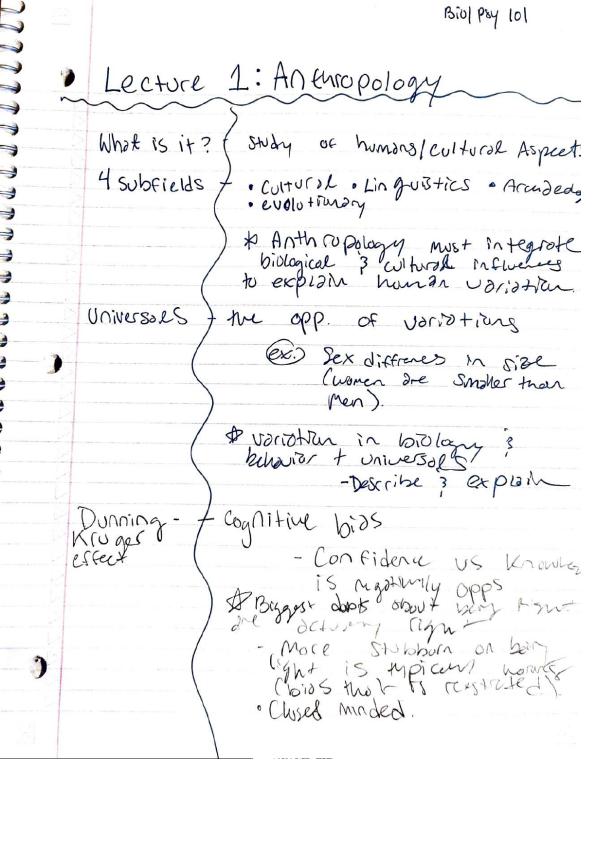 Bio/Psy 101
Lecture 1: Anthropology
What is it? Study of humans/cultural Aspect.
4 subfields • Cultural • Linguistics •
• evolutionary
* Anthropology must integrate
biological & cultural influences
to explain human variation.
Universals the opp. of variations
ex.) Sex diffrenes in size
(women are smaller than
Men).
* variation in biology &
behavior + universals
- Describe & explain
Dunning - Cognitive bias
Kruger
effect
- Confidence vs
is opps
* Biggest about being right
are actually right
- More stubburn on being
right is
(bias that is
• Closed minded.